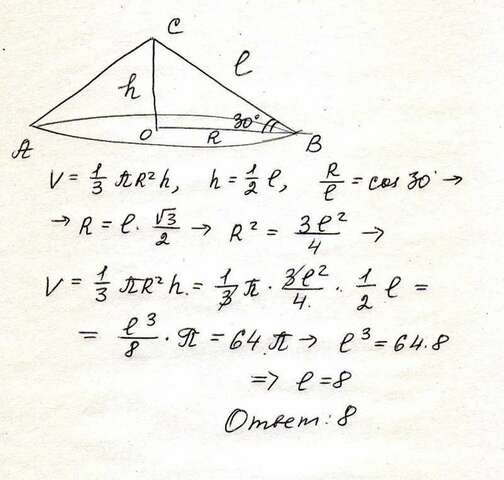 C
h
l
30°
A
O
R
B
V = 1/3 πR²h, h = 1/2 l, R/l = cos 30° →
→ R = l · √3/2 → R² = 3l²/4 →
V = 1/3 πR²h = 1/3 π · 3l²/4 · 1/2 l =
= l³/8 · π = 64π → l³ = 64·8
=> l = 8
Ответ: 8